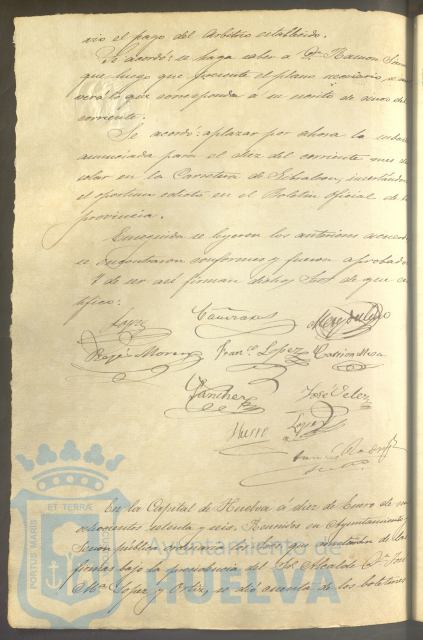 vio el pago del Arbitrio establecido.
Se acordó se haga saber a Dn. Ramon
que luego que presente el plano necesario, se
verá lo que corresponda a su escrito de nueve del
corriente.
Se acordó: aplazar por ahora la subas
anunciada para el diez del corriente mes de
solar en la Carretera de Gibraleon, insertándo
el oportuno edicto en el Boletin Oficial de la
provincia.
Enseguida se leyeron los anteriores acuer
se encontraron conformes y fueron aprobado
Y de ser así firman dichos Sres. de que cer
tifico:
Lopez
Cañizares
Moreno
Franco. Lopez
Sanchez
José Velez
Lopez
En la Capital de Huelva á diez de Enero de mil
ochocientos setenta y seis. Reunidos en Ayuntamiento
Sesion pública ordinaria los Sres. que constarán de las
firmas bajo la presidencia del Sr. Alcalde Dn. José
Ma. Lopez y Ortiz, se dió cuenta de los boletines
PORTUS MARIS ET TERRAE CUSTODIA
Ayuntamiento de
HUELVA